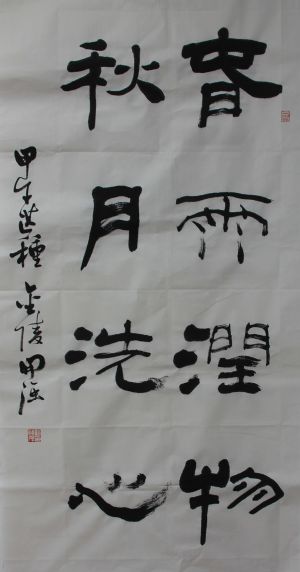 春雨潤物
秋月洗心
甲午芒種 金陵